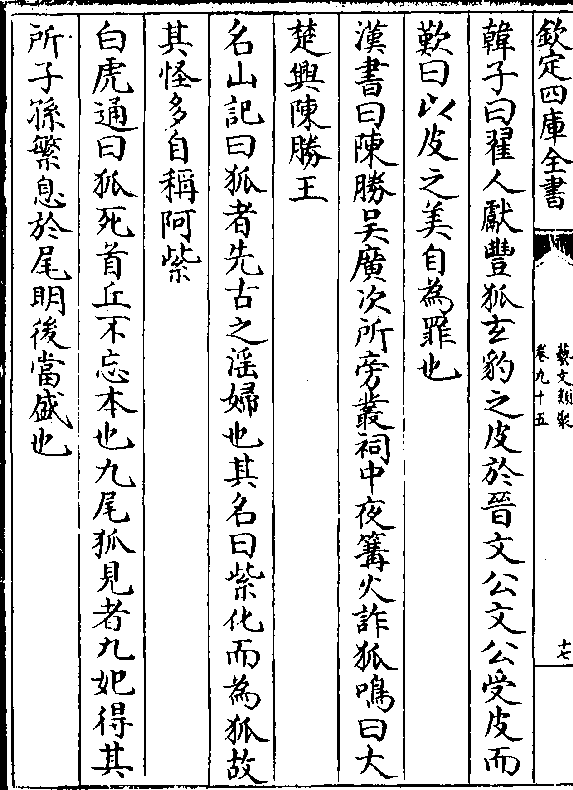 欽定四庫全書
藝文類聚
卷九十五
十七
韓子曰翟人獻豐狐玄豹之皮於晉文公文公受皮而
歎曰以皮之美自為罪也
漢書曰陳勝吳廣次所旁叢祠中夜篝火詐狐鳴曰大
楚興陳勝王
名山記曰狐者先古之淫婦也其名曰紫化而為狐故
其怪多自稱阿紫
白虎通曰狐死首丘不忘本也九尾狐見者九妃得其
所子孫繁息於尾明後當盛也